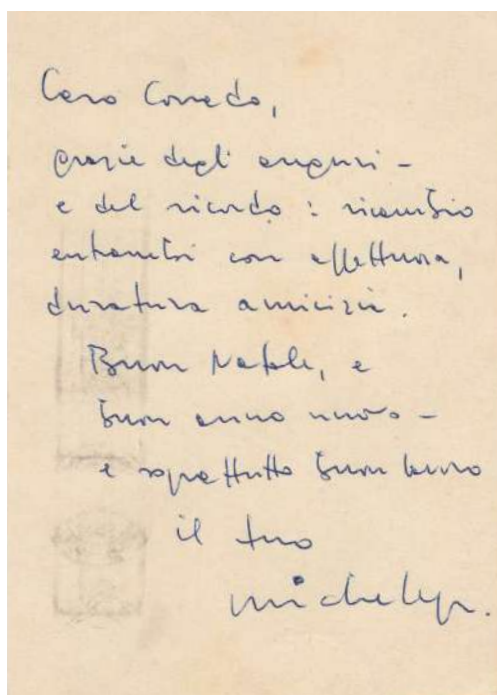 Caro Corrado,
grazie degli auguri -
e del ricordo: ricambio
entrambi con affettuosa,
duratura amicizia.
Buon Natale, e
buon anno nuovo -
e soprattutto buon lavoro
il tuo